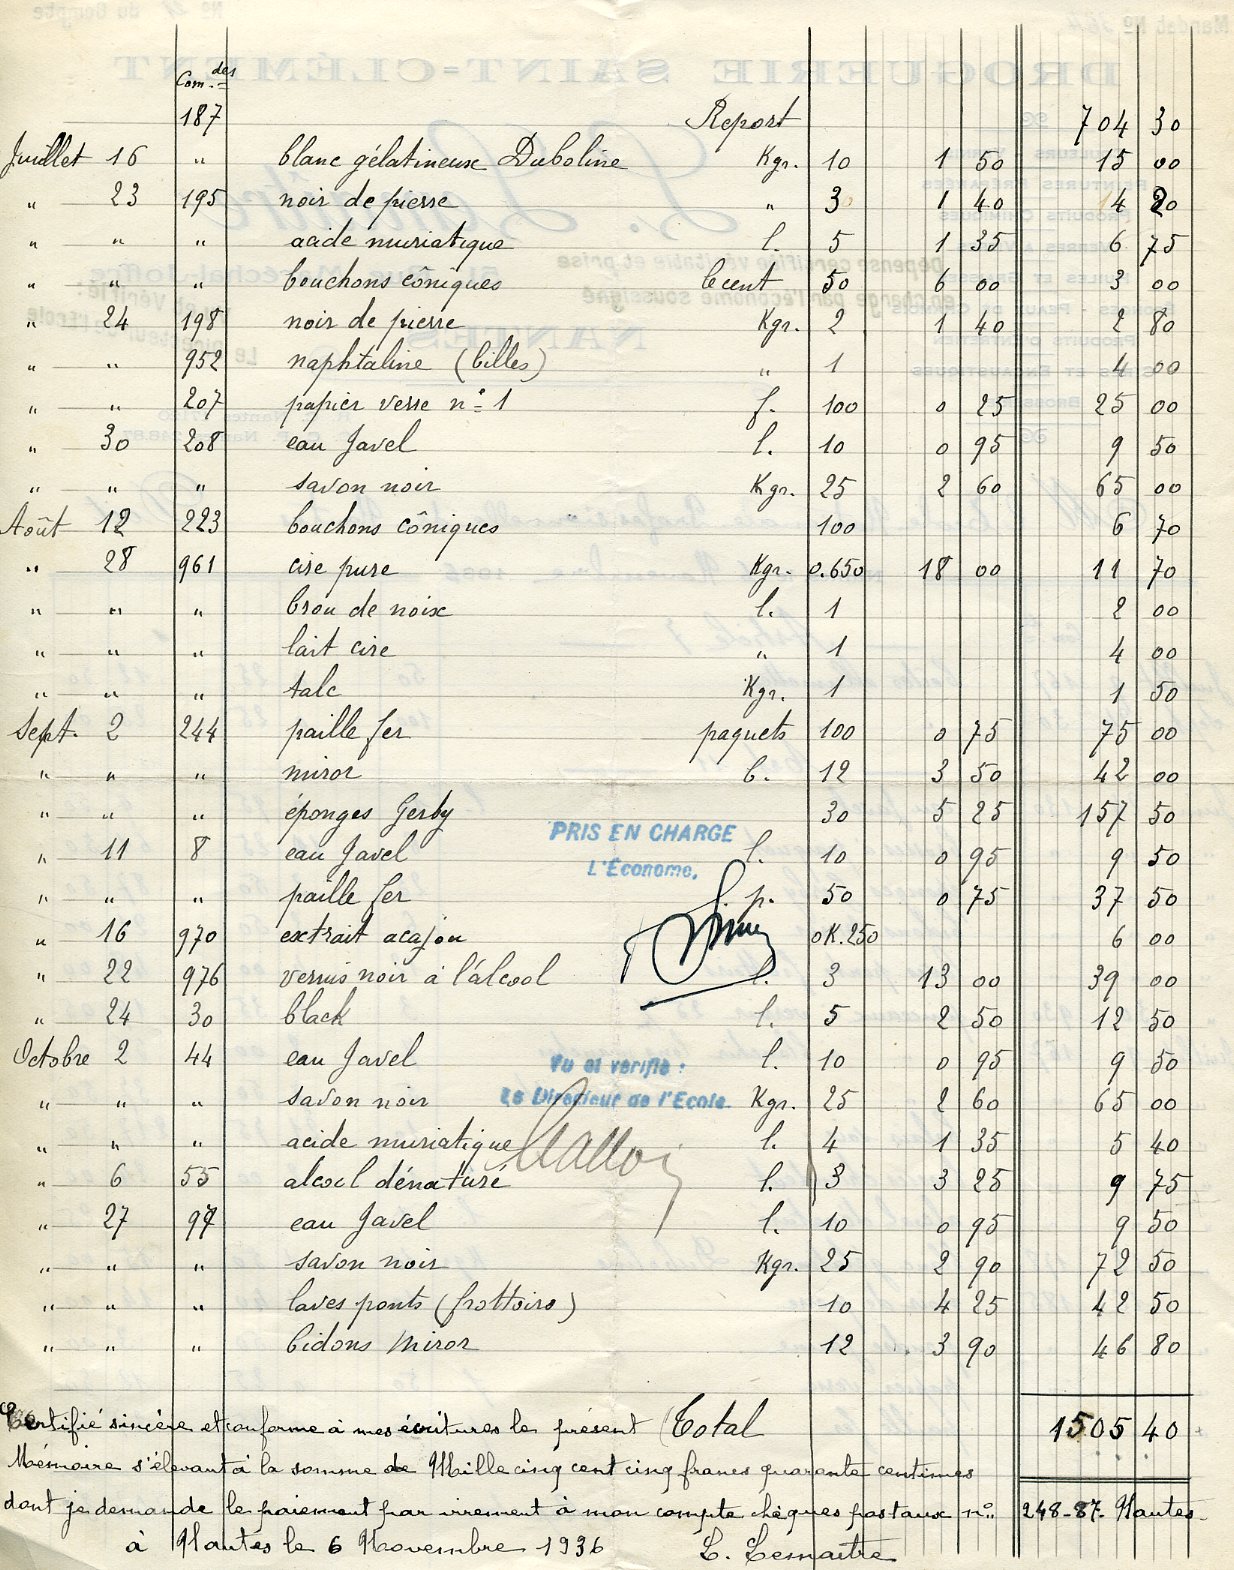 Com.des
187 Report 704 30
Juillet 16 " blanc gélatineux Duboline Kgr. 10 1 50 15 00
" 23 195 noir de pierre " 3 1 40 4 20
" " " acide muriatique l. 5 1 35 6 75
" " " bouchons côniques le cent 50 6 00 3 00
" 24 198 noir de pierre Kgr. 2 1 40 2 80
" " 952 naphtaline (billes) " 1 4 00
" " 207 papier verre n° 1 f. 100 0 25 25 00
" 30 208 eau Javel l. 10 0 95 9 50
" " " savon noir Kgr. 25 2 60 65 00
Août 12 223 bouchons côniques 100 6 70
" 28 961 cire pure Kgr. 0.650 18 00 11 70
" " " brou de noix l. 1 2 00
" " " lait cire " 1 4 00
" " " talc Kgr. 1 1 50
Sept. 2 244 paille fer paquets 100 0 75 75 00
" " " miror b. 12 3 50 42 00
" " " éponges Gerby 30 5 25 157 50
PRIS EN CHARGE
L'Econome,
" 11 8 eau Javel l. 10 0 95 9 50
" " " paille fer p. 50 0 75 37 50
" 16 970 extrait acajou 0K.250 6 00
" 22 976 vernis noir à l'alcool l. 3 13 00 39 00
" 24 30 black l. 5 2 50 12 50
Octobre 2 44 eau Javel l. 10 0 95 9 50
Vu et vérifié :
Le Directeur de l'Ecole
" " " savon noir Kgr. 25 2 60 65 00
" " " acide muriatique l. 4 1 35 5 40
" 6 55 alcool dénaturé l. 3 3 25 9 75
" 27 97 eau Javel l. 10 0 95 9 50
" " " savon noir Kgr. 25 2 90 72 50
" " " laves ponts (frottoirs) 10 4 25 42 50
" " " bidons Miror 12 3 90 46 80
Certifié sincère et conforme à mes écritures le présent Total 1505 40
Mémoire s'élevant à la somme de Mille cinq cent cinq francs quarante centimes
dont je demande le paiement par virement à mon compte chèques postaux n° 248-87 Nantes
à Nantes le 6 Novembre 1936 L. Lemaitre